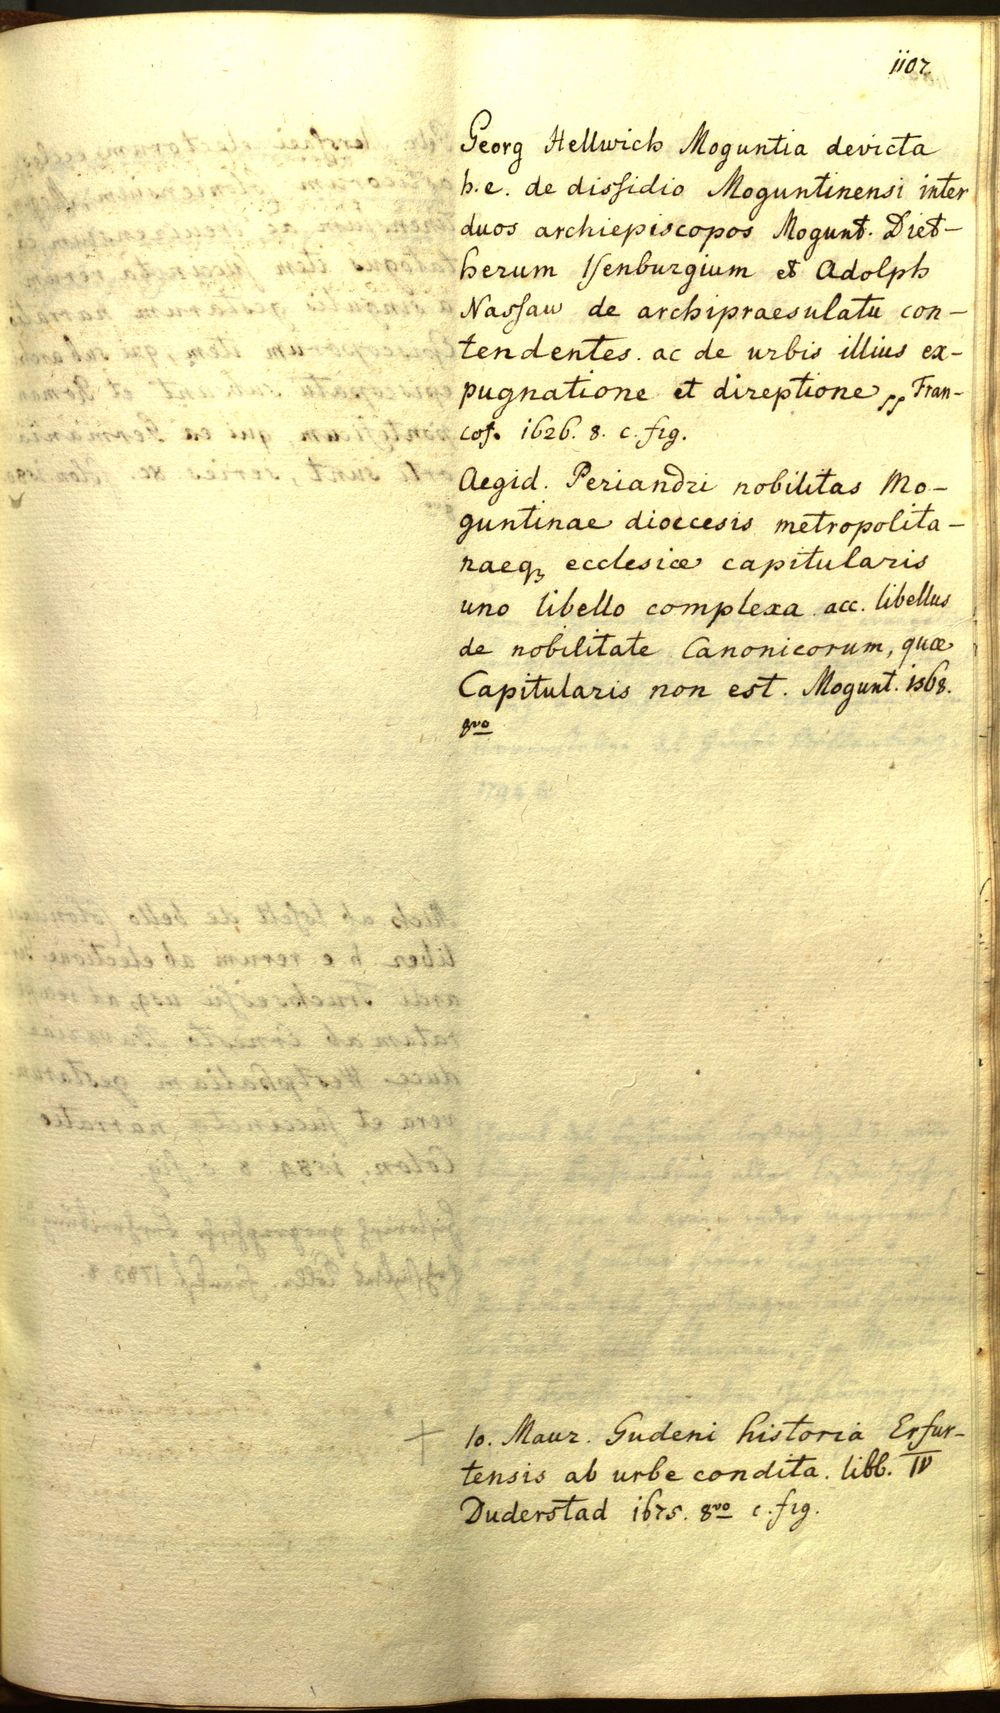 1102
Georg Hellwich Moguntia devicta
h. e. de dissidio Moguntinensi inter
duos archiepiscopos Mogunt. Diet-
herum Isenburgium et Adolph
Nassau de archipraesulatu con-
tendentes. ac de urbis illius ex-
pugnatione et direptione pp Fran-
cof. 1626. 8. c. fig.
Aegid. Periandri nobilitas Mo-
guntinae dioecesis metropolita-
naeq3 ecclesiae capitularis
uno libello complexa. acc. libellus
de nobilitate Canonicorum, quae
Capitularis non est. Mogunt. 1568.
8vo
+ Io. Maur. Gudeni historia Erfur-
tensis ab urbe condita. libb. IV
Duderstad 1675. 8vo c. fig.